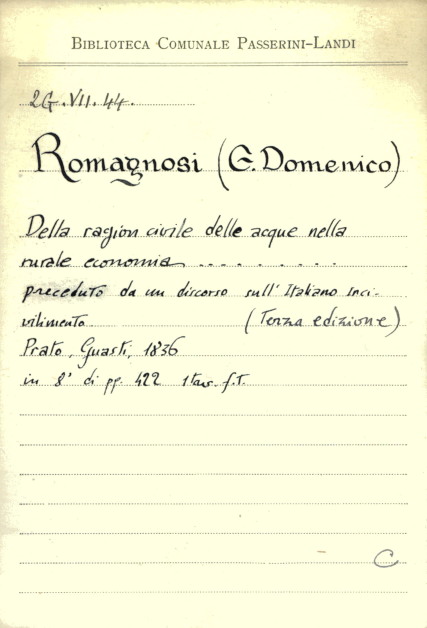 BIBLIOTECA COMUNALE PASSERINI-LANDI
2G.VII.44.
Romagnosi (G. Domenico)
Della ragion civile delle acque nella
rurale economia . . . . . . . . .
preceduto da un discorso sull'Italiano Inci-
vilimento. (Terza edizione)
Prato, Guasti, 1836
in 8° di pp. 422 1 tav. f.t.
C